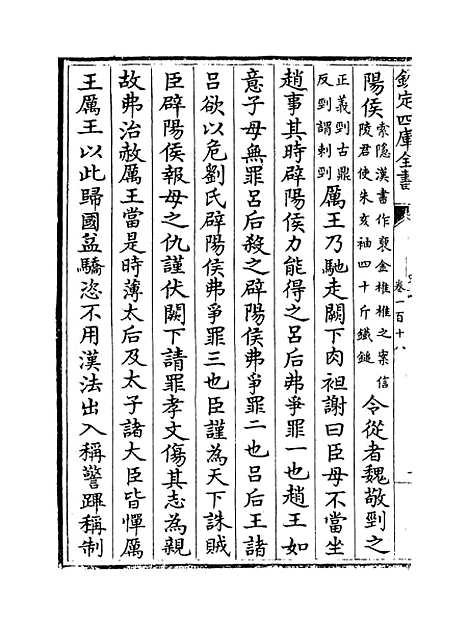 欽定四庫全書
卷一百十八
陽侯索隱漢書作裒金椎椎之案信陵君使朱亥袖四十斤鐵鎚令從者魏敬剄之
正義剄古鼎反剄謂刺剄厲王乃馳走闕下肉袒謝曰臣母不當坐
趙事其時辟陽侯力能得之呂后弗爭罪一也趙王如
意子母無罪呂后殺之辟陽侯弗爭罪二也呂后王諸
呂欲以危劉氏辟陽侯弗爭罪三也臣謹為天下誅賊
臣辟陽侯報母之仇謹伏闕下請罪孝文傷其志為親
故弗治赦厲王當是時薄太后及太子諸大臣皆憚厲
王厲王以此歸國益驕恣不用漢法出入稱警蹕稱制